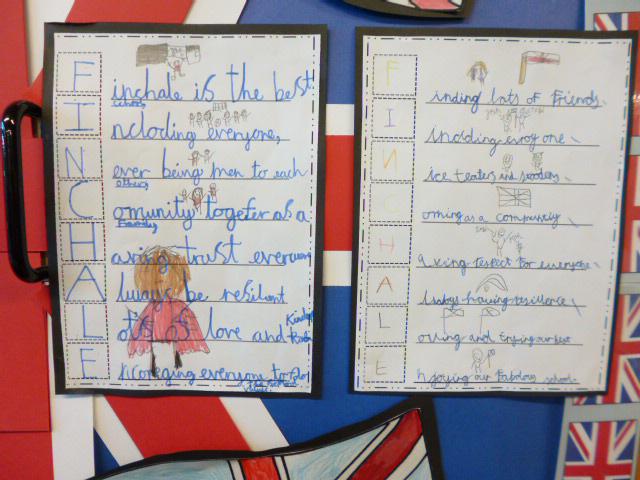 Finchale is the best
school
Incloding everyone,
Never being men to each
others
Comunity togefer as a
Family
Having trust everyone
Always be resilient
Lots of love and
Encoreging everyone to
Finding lots of Friends
Incloding everyone
Nice teaters and
Coming as a community
Having respect for everyone
Always having resilience
Loving and
Enjoying our Fabulous school